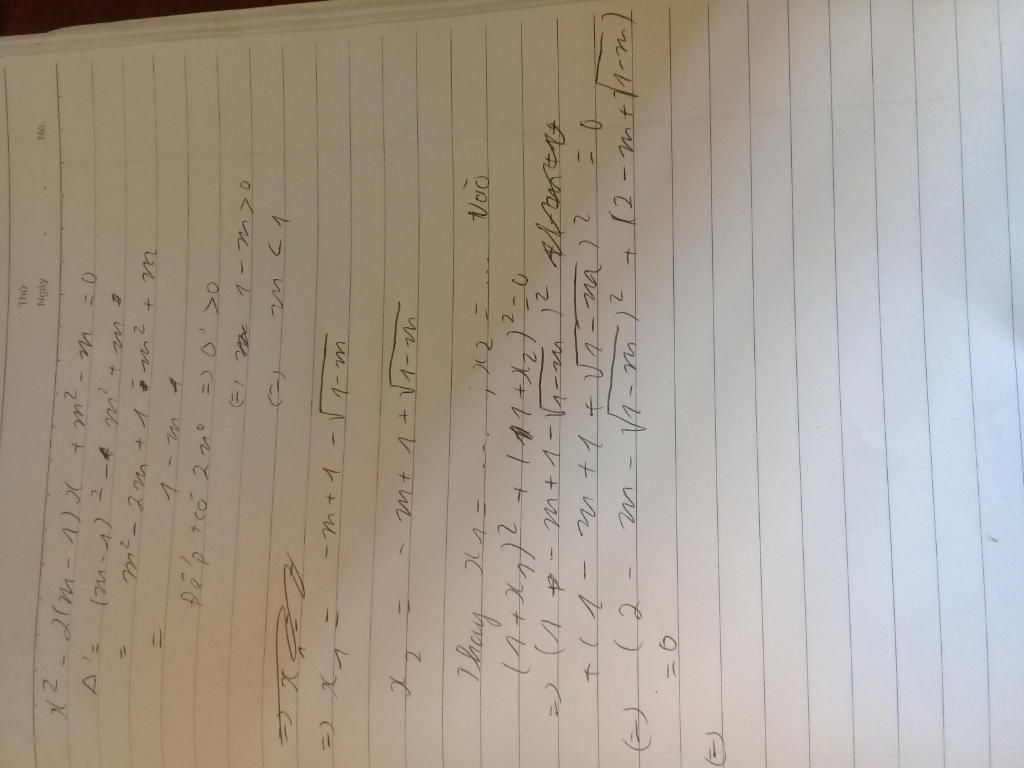 Thứ
Ngày No.
x² - 2(m-1)x + m² - m = 0
Δ' = (m-1)² - m² + m
= m² - 2m + 1 - m² + m
= 1 - m
Để p t có 2 n⁰ => Δ' > 0
(=) 1 - m > 0
(=) m < 1
=> x₁ = -m+1 - √1-m
x₂ = -m+1 + √1-m
Thay x₁ = ... ; x₂ = ... vào
(1+x₁)² + (1+x₂)² = 0
=> (1 - m+1 - √1-m)²
+ (1 - m+1 + √1-m)² = 0
(=) (2 - m - √1-m)² + (2 - m + √1-m)
= 0
(=)